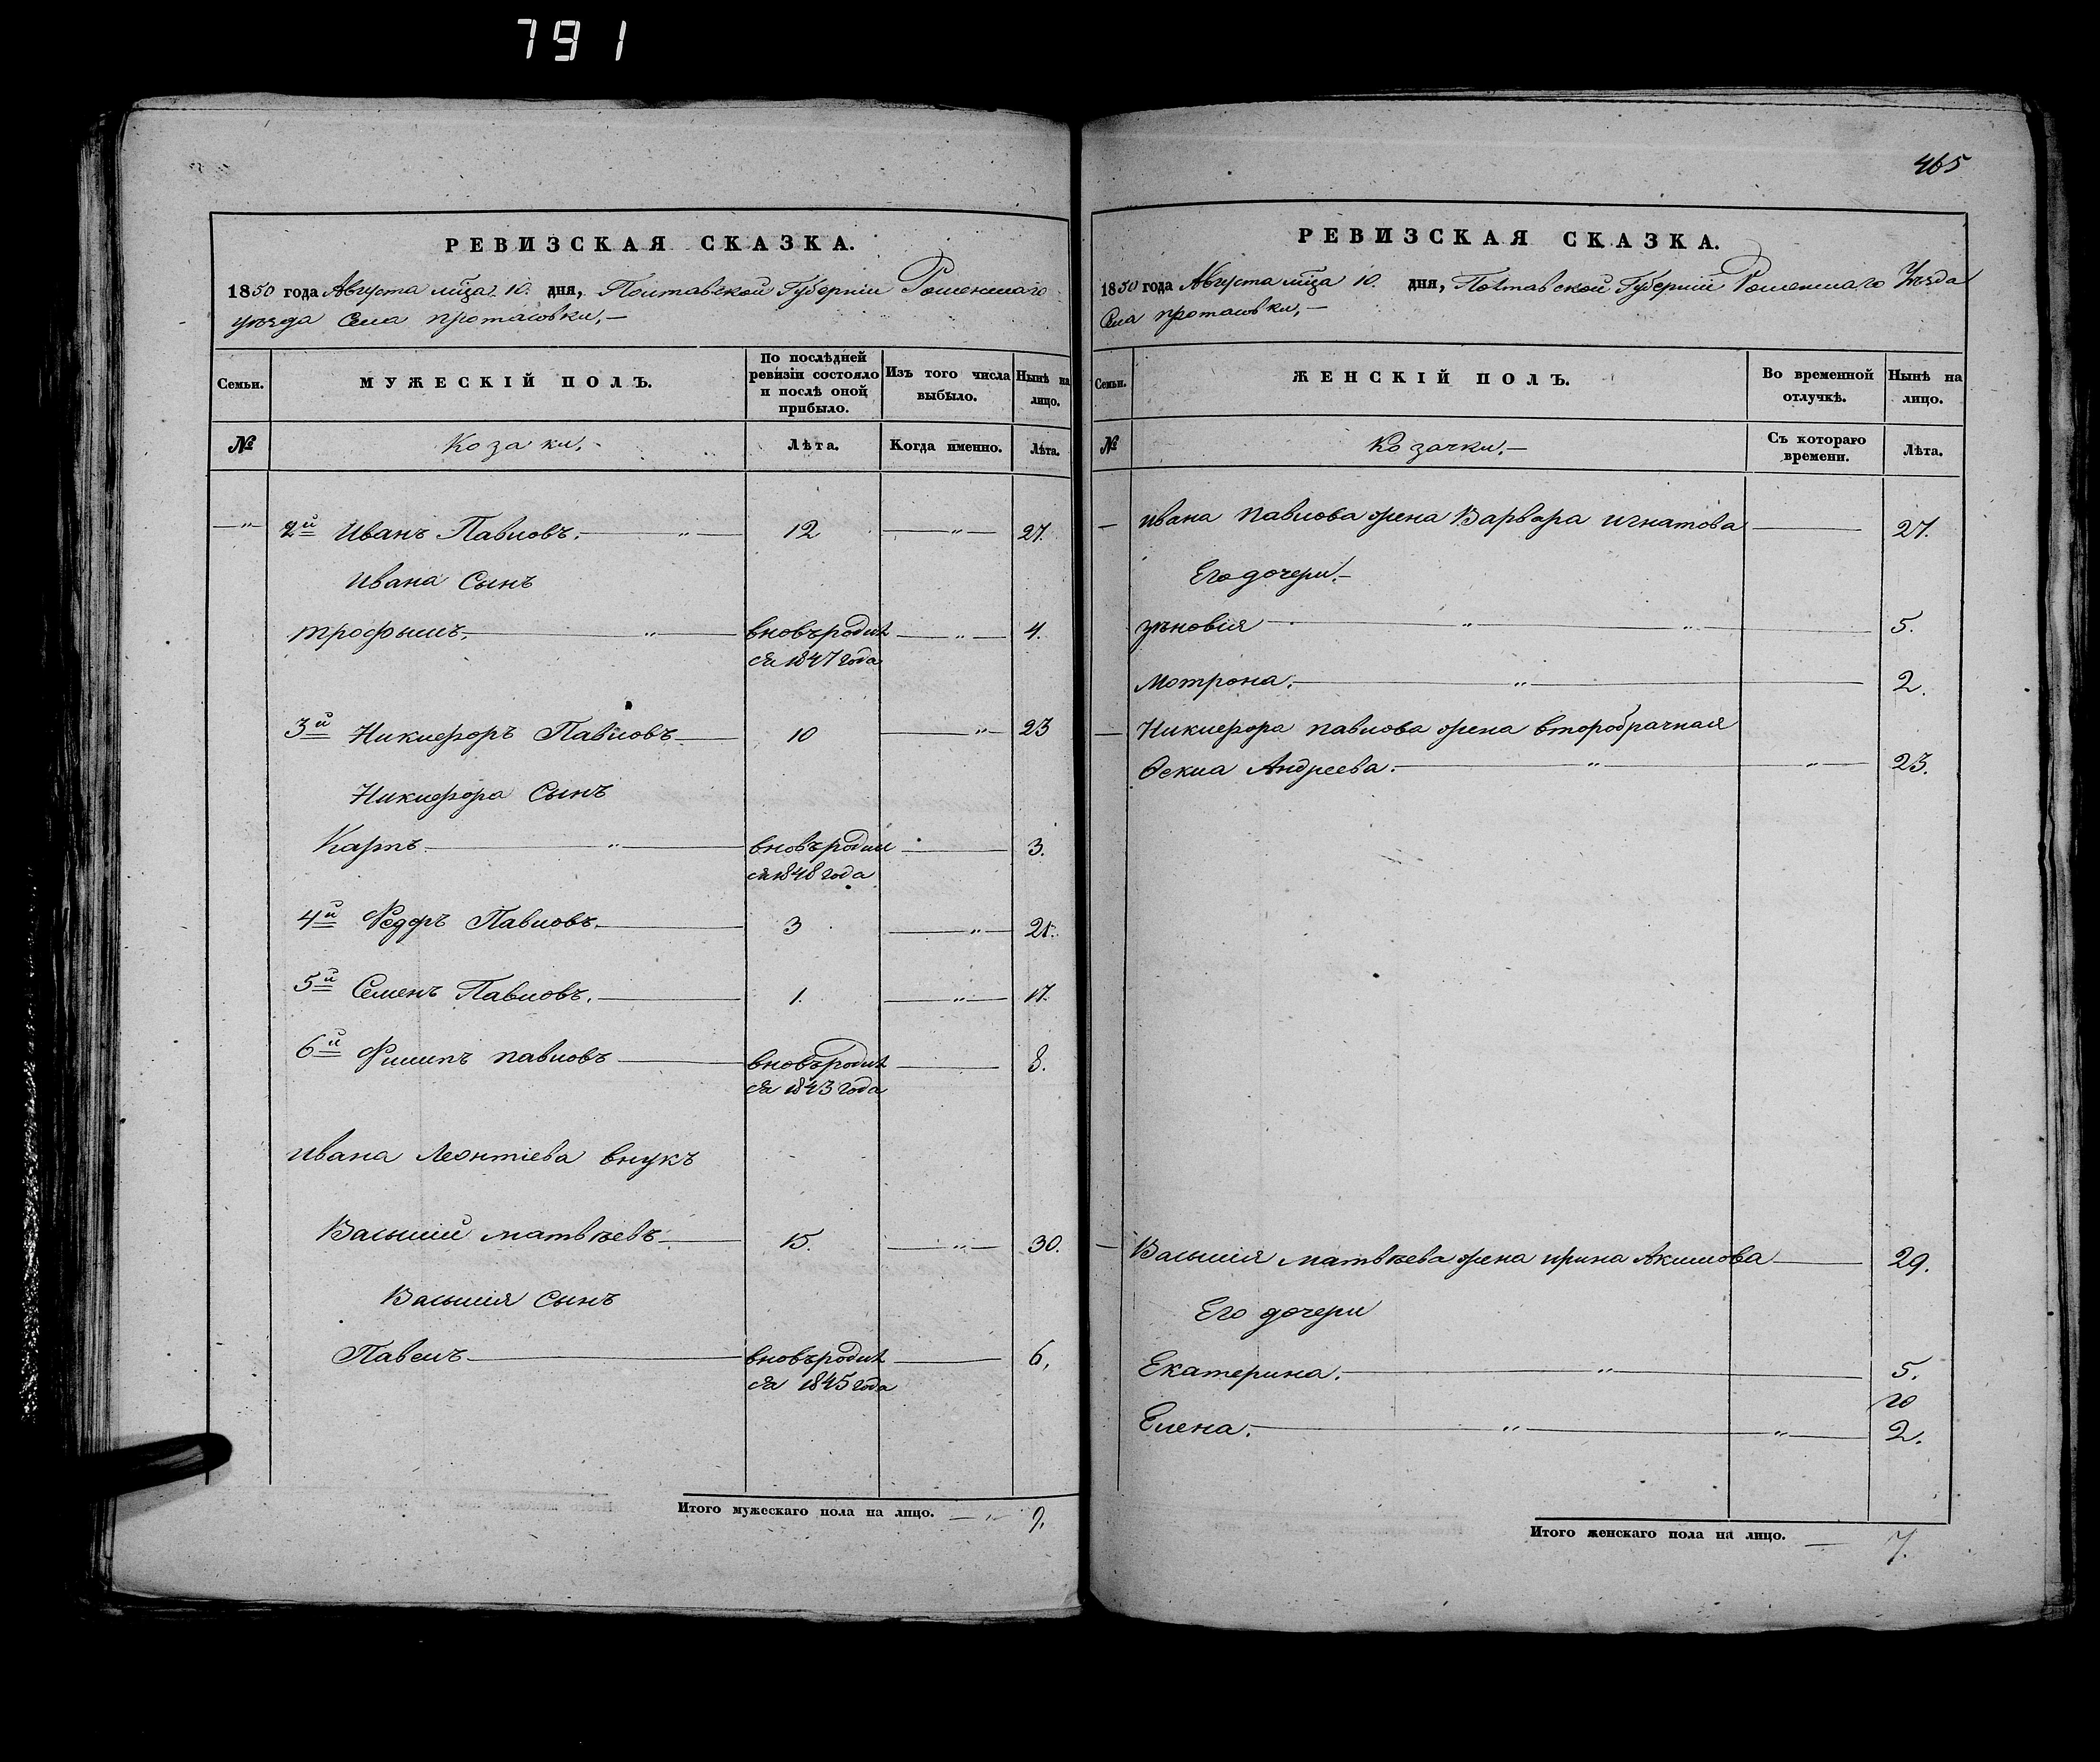 791
РЕВИЗСКАЯ СКАЗКА.
1850 года Августа мца 10. дня, Полтавской Губерніи Роменскаго
уѣзда Села протасовки,—
Семьи.
МУЖЕСКІЙ ПОЛЪ.
По послѣдней ревизіи состояло и послѣ оной прибыло.
Изъ того числа выбыло.
Нынѣ на лицо.
№
Козаки.
Лѣта.
Когда именно.
Лѣта.
2й Иванъ Павловъ. 12 27.
Ивана Сынъ
трофымъ. вновъродил 4.
ся 1847 года
3й Никифоръ Павловъ 10 23
Никифора Сынъ
Карпъ вновъродил 3.
ся 1848 года
4й Федоръ Павловъ 3
5й Семенъ Павловъ. 1. 17.
6й Филипъ павловъ вновъродил 8.
ся 1843 года
Ивана Леонтіева внукъ
Василий матвѣевъ. 15. 30.
Василія Сынъ
Павелъ вновъродил 6,
ся 1845 года
Итого мужескаго пола на лицо. 9.
465
РЕВИЗСКАЯ СКАЗКА.
1850 года Августа мца 10. дня, Полтавской Губерніи Роменскаго Уѣзда
Села протасовки,—
Семьи.
ЖЕНСКІЙ ПОЛЪ.
Во временной отлучкѣ.
Нынѣ на лицо.
№
Козачки.—
Съ котораго времени.
Лѣта.
Ивана Павлова жена Варвара игнатова 27.
Его дочери.—
зѣновія 5.
Мотрона. 2.
Никифора павлова жена второбрачная
Ѳекла Андреева. 23.
Василія матвѣева жена ирина Акимова 29.
Его дочери
Екатерина. 5.
Елена. 2.
Итого женскаго пола на лицо. 7.